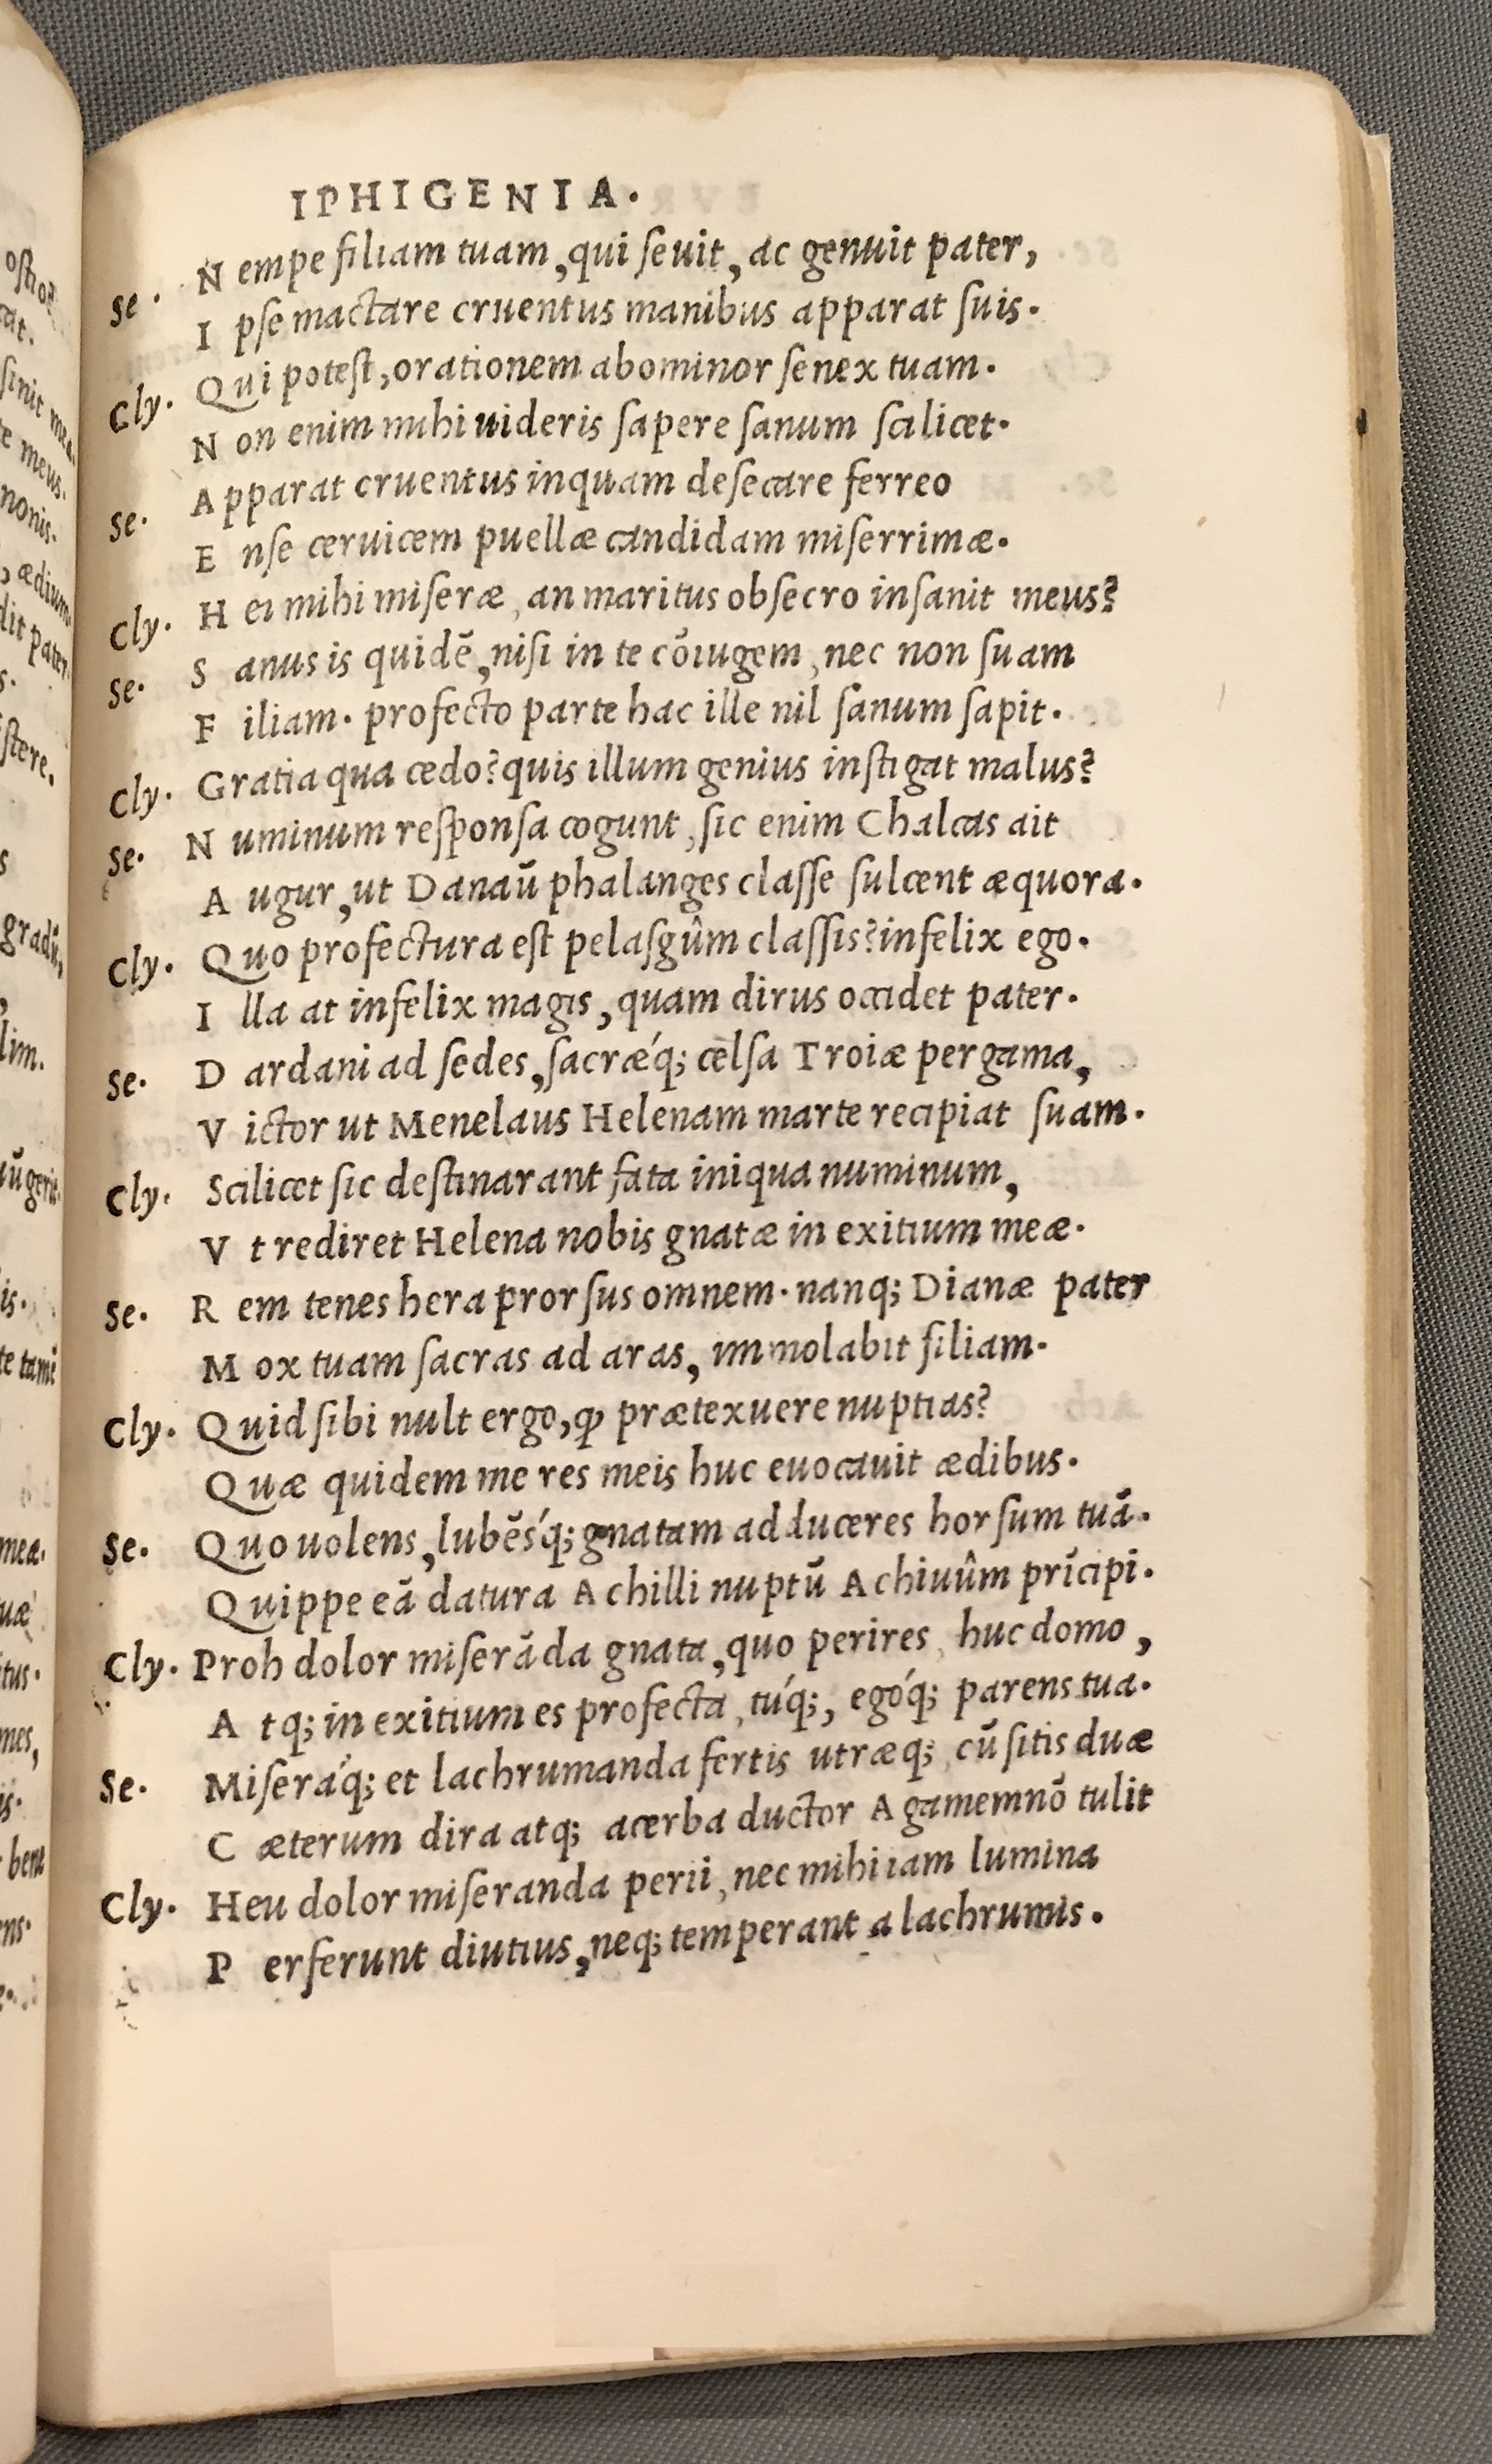 IPHIGENIA.
Se. Nempe filiam tuam, qui seuit, ac genuit pater,
Ipse mactare cruentus manibus apparat suis.
Cly. Qui potest, orationem abominor senex tuam.
Non enim mihi uideris sapere sanum scilicet.
Se. Apparat cruentus inquam desecare ferreo
Ense ceruicem puellæ candidam miserrimæ.
Cly. Hei mihi miseræ, an maritus obsecro insanit meus?
Se. Sanus is quidē, nisi in te cōiugem, nec non suam
Filiam. profecto parte hac ille nil sanum sapit.
Cly. Gratia qua cedo? quis illum genius instigat malus?
Se. Numinum responsa cogunt, sic enim Chalcas ait
Augur, ut Danaū phalanges classe sulcent æquora.
Cly. Quo profectura est pelasgûm classis? infelix ego.
Illa at infelix magis, quam dirus occidet pater.
Se. Dardani ad sedes, sacræ´q; celsa Troiæ pergama,
Victor ut Menelaus Helenam marte recipiat suam.
Cly. Scilicet sic destinarant fata iniqua numinum,
Vt rediret Helena nobis gnatæ in exitium meæ.
Se. Rem tenes hera prorsus omnem. nanq; Dianæ pater
Mox tuam sacras ad aras, immolabit filiam.
Cly. Quid sibi nult ergo, ꝙ prætexuere nuptias?
Quæ quidem me res meis huc euocauit ædibus.
Se. Quo uolens, lubēs´q; gnatam adduceres horsum tuā.
Quippe eā datura Achilli nuptū Achiuûm prīcipi.
Cly. Proh dolor miserāda gnata, quo perires, huc domo,
Atq; in exitium es profecta, tú q;, egó q; parens tua.
Se. Miserá q; et lachrumanda fertis utræq;, cū sitis duæ
Cæterum dira atq; acerba ductor Agamemnō tulit
Cly. Heu dolor miseranda perii, nec mihi iam lumina
Perferunt diutius, neq; temperant a lachrumis.